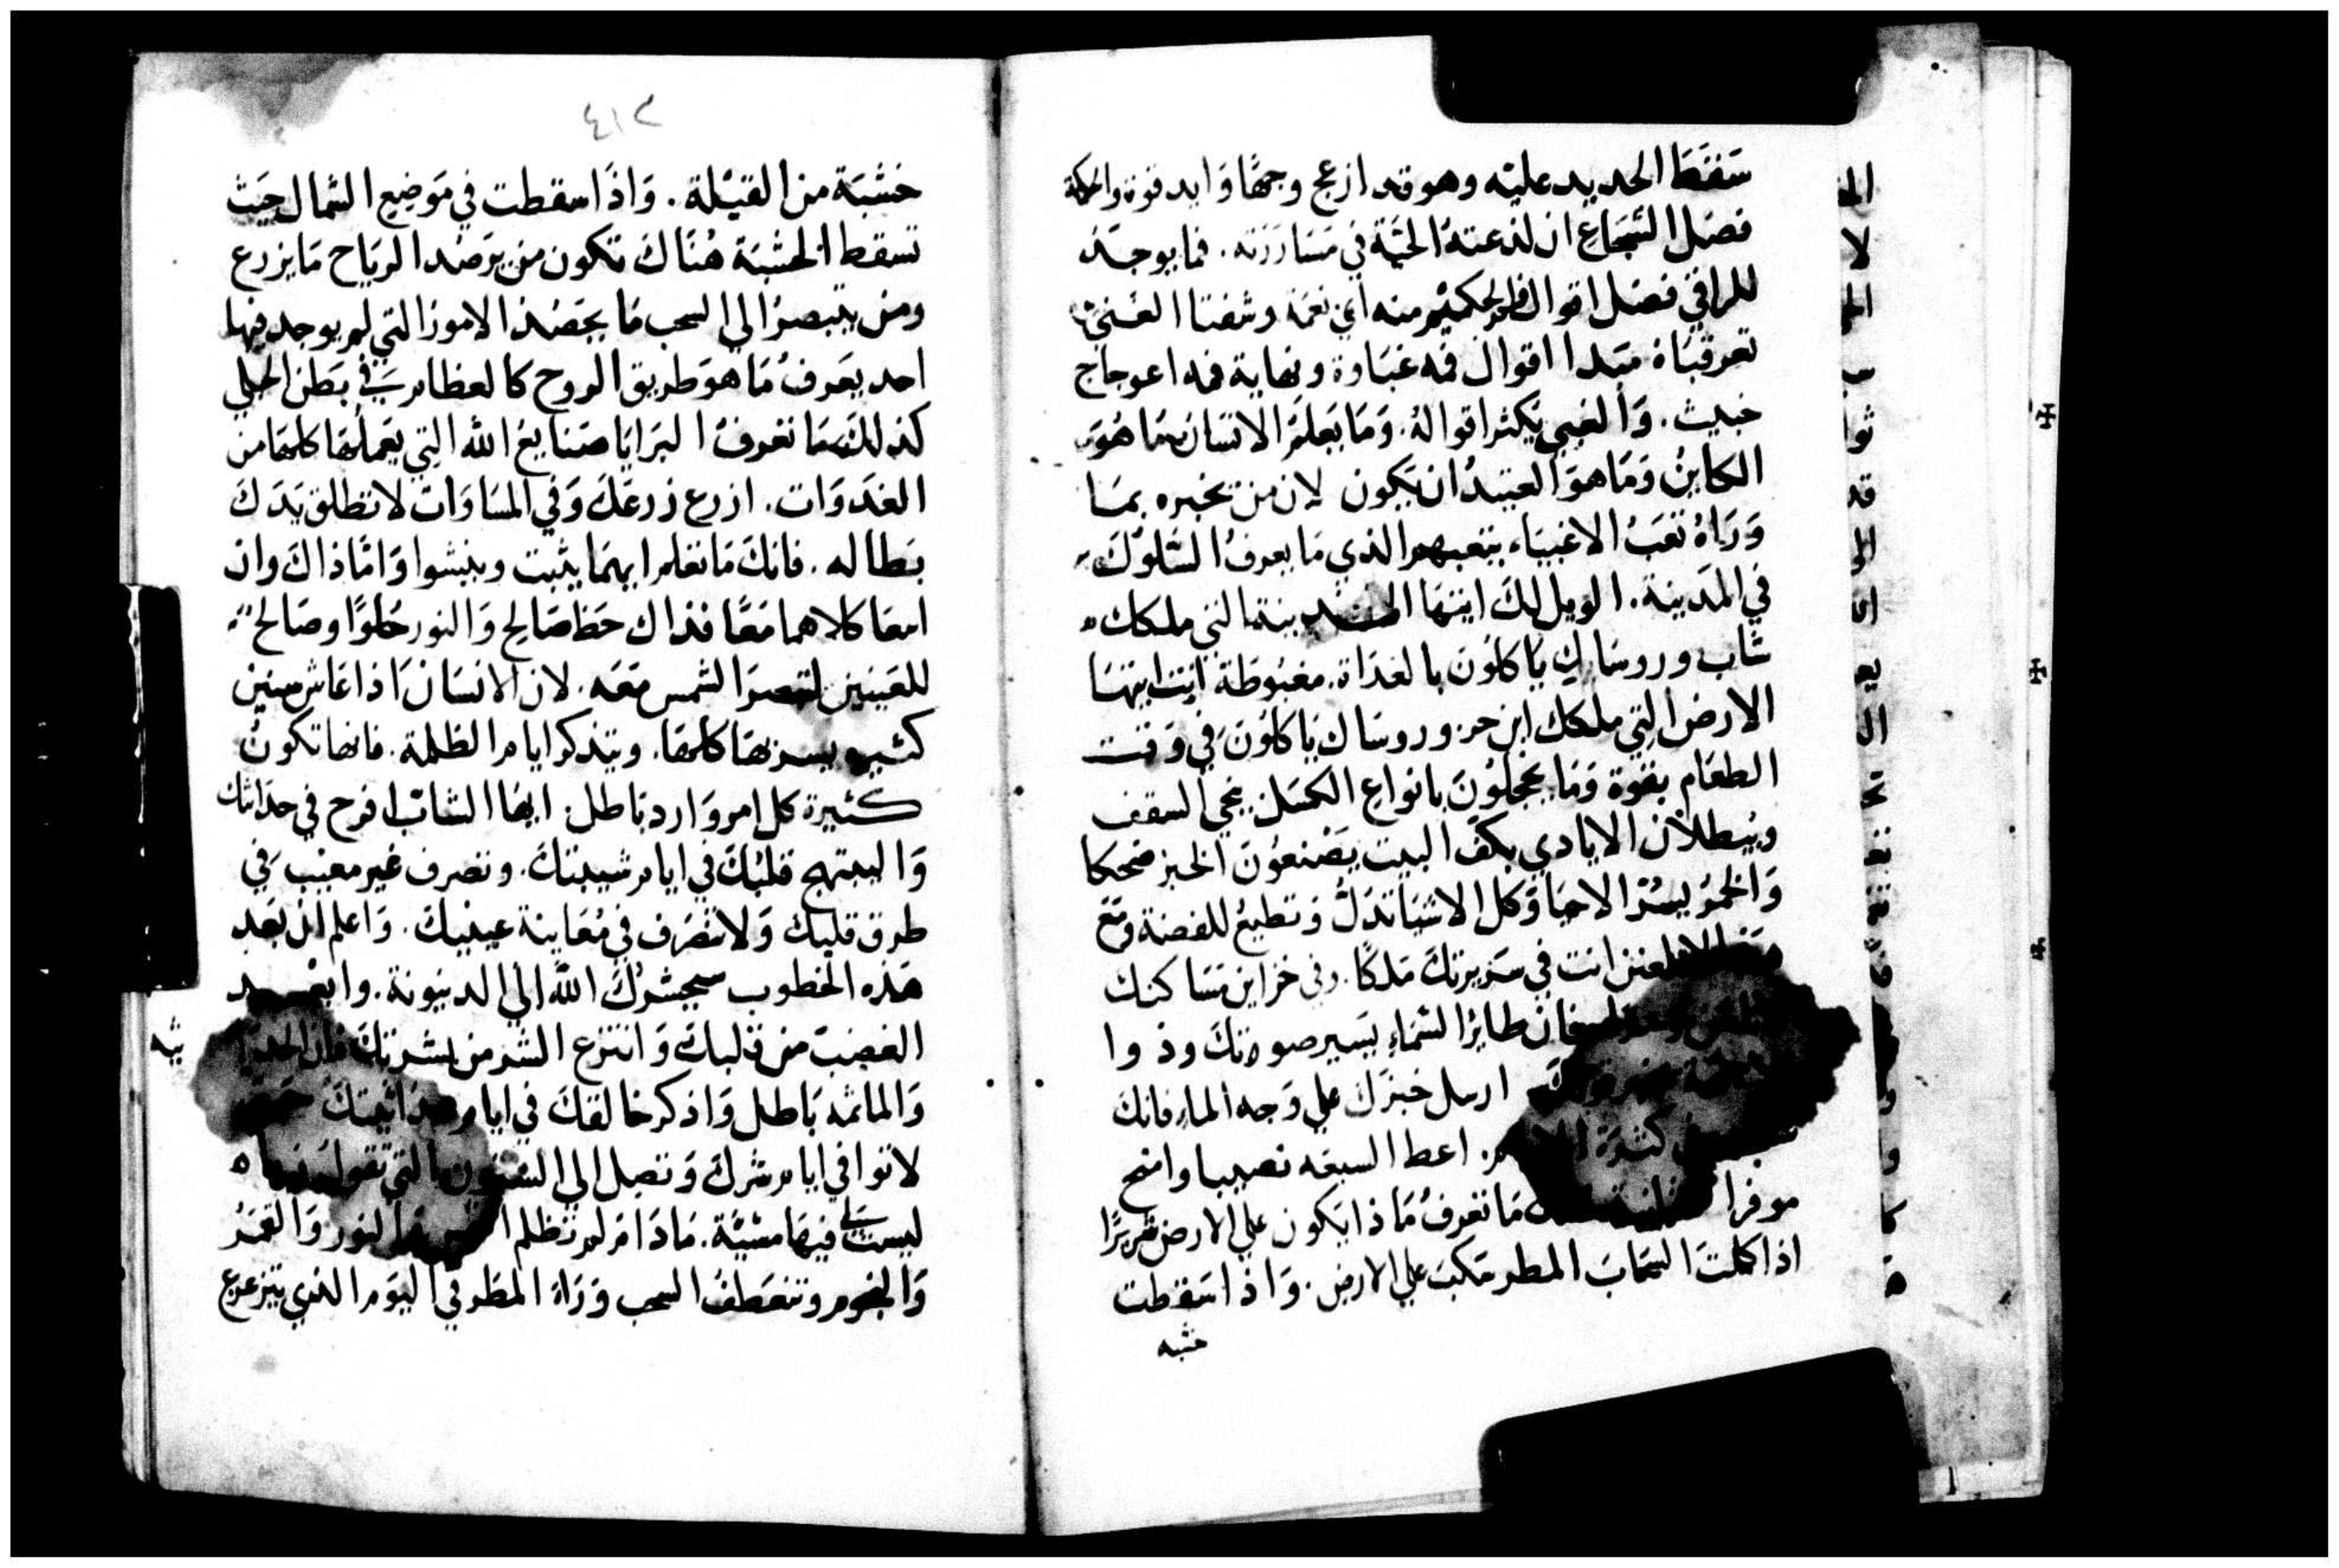 سَقَطَ الحديد عليه وهو قد ازعج وجهًا وَايد قوة والحكمة
فضل الشجاع ان لذعته الحيَّة في مسَارَرَته. فما يوجَد
للراقي فضل اقوال فم الحكيم منه اي نعمَة وشفتا الغَبي
تغرقانه مبدا اقوال فمه غبَاوة ونهاية فمه اعوجاج
خبيث. وَالغبي يكثر اقوالهُ. وَمَا يَعلمُ الانسَان مَا هُوَ
الكاينُ وَمَا هوَ العتيدُ ان يَكون لان من يخبره بمَا
وَرَاهُ تعَبُ الاغبيَاء يتعبهم الذي مَا يعرفُ السُّلوك
في المدينة. الويل لكِ ايتهَا المدينة التي ملكك
شَاب وروسَاكِ يَاكلونَ بالغدَاة. مغبُوطَة انتِ ايتهَا
الارض التي ملكك ابن حر وروسَاك يَاكلونَ في وَقت
الطعَام بقوة وَمَا يخجلونَ بانواع الكسَل يجي السقف
وببطلان الايادي يكفُ البيت يَصْنعُونَ الخبز ضحكا
وَالخمرُ يسُرّ الاحيَا وَكل الاشيَا تذل وَتطيعُ للفضة وَمَع
لا تلعن انت في سَريرتكَ مَلكًا. وفي خزاين مَسَاكنك
فان طايرُ السَّمَاءِ يسَير صوتكَ وذوا
ارسل خبزَك علي وَجه الماءِ فانك
كثرَة اعط السبعه نصيبا وامنح
موفرا مَا تعرفُ مَاذا يَكون علي الارض شريرًا
اذا كملت السّحَابَ المطر سَكبَ علي الارض. وَاذا سَقطت
خشبه
٤١٢
خشبَة من القبْلة. وَاذَا سقطت في مَوضِعِ الشمال حَيث
تسقط الخشبَة هُنَاكَ تكون من يَرصُد الريَاح مَا يزرع
ومن يتبصرُ الي السحب مَا يحصُد الامورُ التي لم يوجد فيها
احد يعَرفُ مَا هوَ طريق الروح كالعظام في بَطن الحبلي
كذلكَ مَا تعرفُ البرَايَا صَنايعُ الله التِي يَعملُهَا كلهَا من
الغدَوَات. ازرع زرعَكَ وَفي المسَاوَات لا تطلق يَدَكَ
بَطاله. فانكَ مَا تعَلم ايهمَا يثبت وينشوا وَامَّا ذاكَ وان
امعَا كلاهما مَعًا فذاك حَظ صَالحِ وَالنور حُلوًا وصَالح
للعَينين لتبصرَ الشمس مَعَه. لان الانسَان اذا عَاش سنين
كثيره يسر بهَا كلهَا. ويتذكر ايام الظلمة. فانها تكونُ
كثيرة كل امر وَارد بَاطل. ايهَا الشابُ افرح في حدَاثتك
وَاليبتهج قلبُكَ في ايام شبيبتكَ. وتصرف غير مُعيَب في
طرق قلبِك وَلا تتصَرف في مُعَاينة عينيكَ. وَاعلم ان بَعد
هَذه الخطوب سيحشرُكَ اللَّه الي الدينونة. وابعَد
الغضبَ من قلبك وَانتزع الشرَ من بشرتكَ فان الحدَاثه
وَالمائمه بَاطل وَاذكر خالقكَ في ايام حدَاثيتكَ
لا توافي ايام شركَ وَتصل الي السنون التي تقول
ليست لي فيهَا مشيَّة. مَادَام لم تظلم النور وَالقمَرُ
وَالنجوم وتنعَطفُ السحب وَرَاءَ المطَر في اليوَم الذي يتزعزع